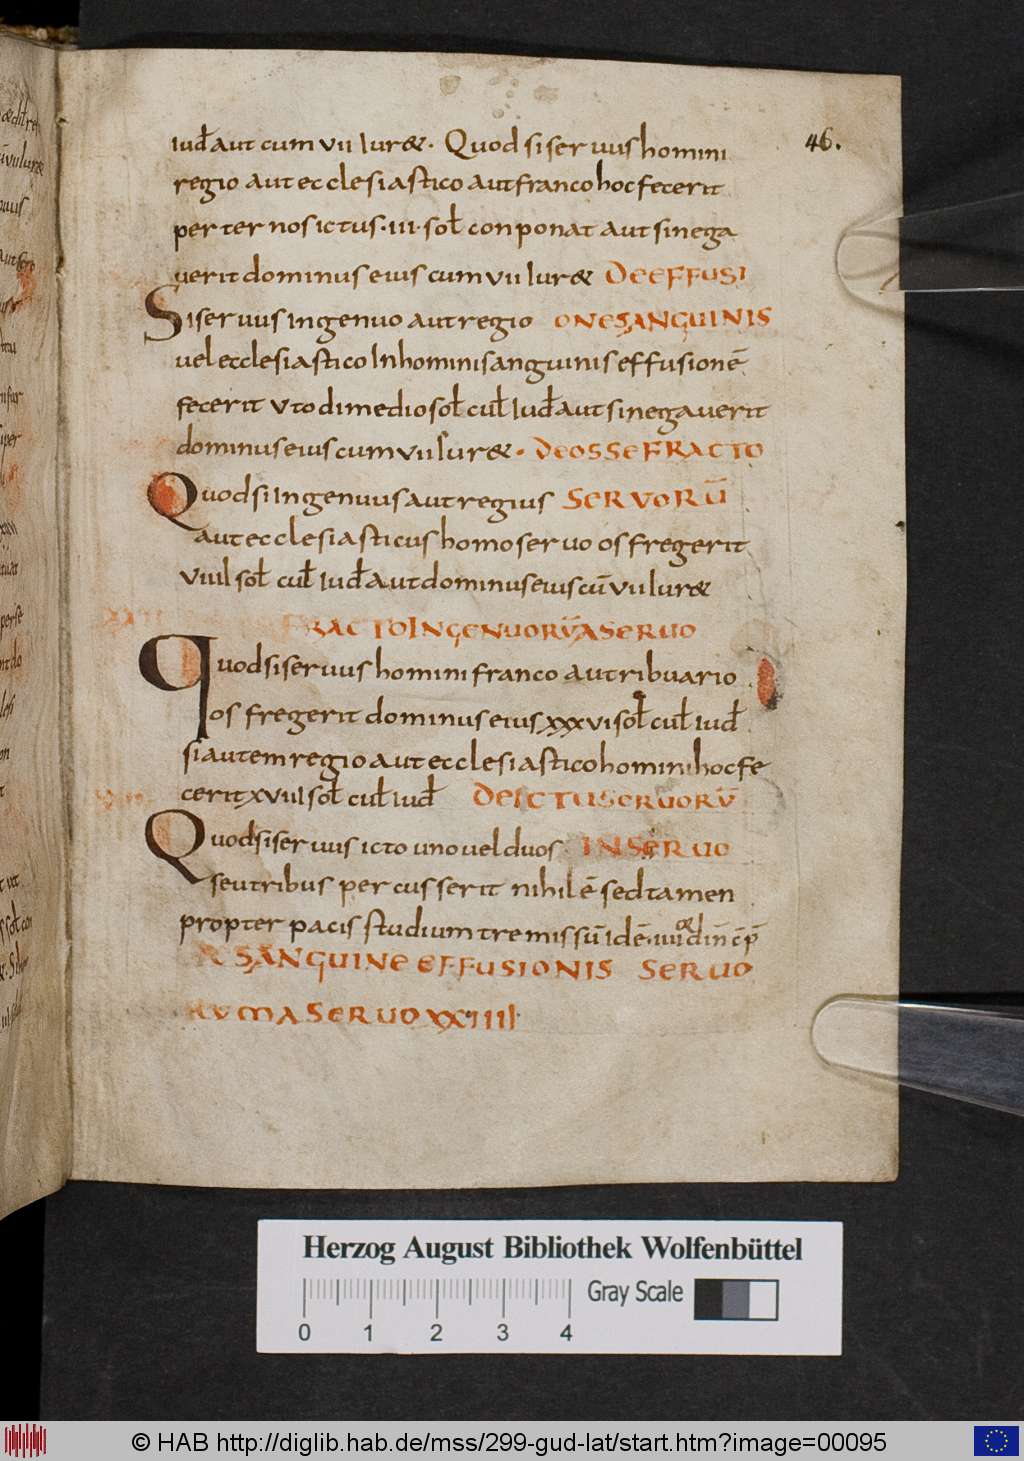 46.
iud̄ aut cum vii iur&. Quod si seruus homini
regio aut ecclesiastico aut franco hoc fecerit
per ter nos ictus · iii · sol̄ conponat aut si nega
uerit dominus eius cum vii iur& DE EFFUSI
Si seruus ingenuo aut regio ONE SANGUINIS
uel ecclesiastico In homini sanguinis effusionē
fecerit uto dimedio sol̄ cul̄ Iud̄ aut si negauerit
dominus eius cum vii iur& · DE OSSE FRACTO
Quod si Ingenuus aut regius SERVORŪ
aut ecclesiasticus homo seruo os fregerit
viiii sol̄ cul̄ Iud̄ aut dominus eius cū vii iur&
FRACTO INGENUORŪ A SERUO
Quod si seruus homini franco aut ribuario
os fregerit dominus eius xxxvi sol̄ cul̄ iud̄
si autem regio aut ecclesiastico homini hoc fe
cerit xviii sol̄ cul̄ iud̄ DE ICTU SERUORŪ
Quod si seruus icto uno uel duos IN SERUO
seu tribus percusserit nihil ē sed tamen
propter pacis studium tremissū idē
SANGUINE EFFUSIONIS SERUO
RUM A SERUO XXIIII
Herzog August Bibliothek Wolfenbüttel
Gray Scale
0 1 2 3 4
© HAB http://diglib.hab.de/mss/299-gud-lat/start.htm?image=00095